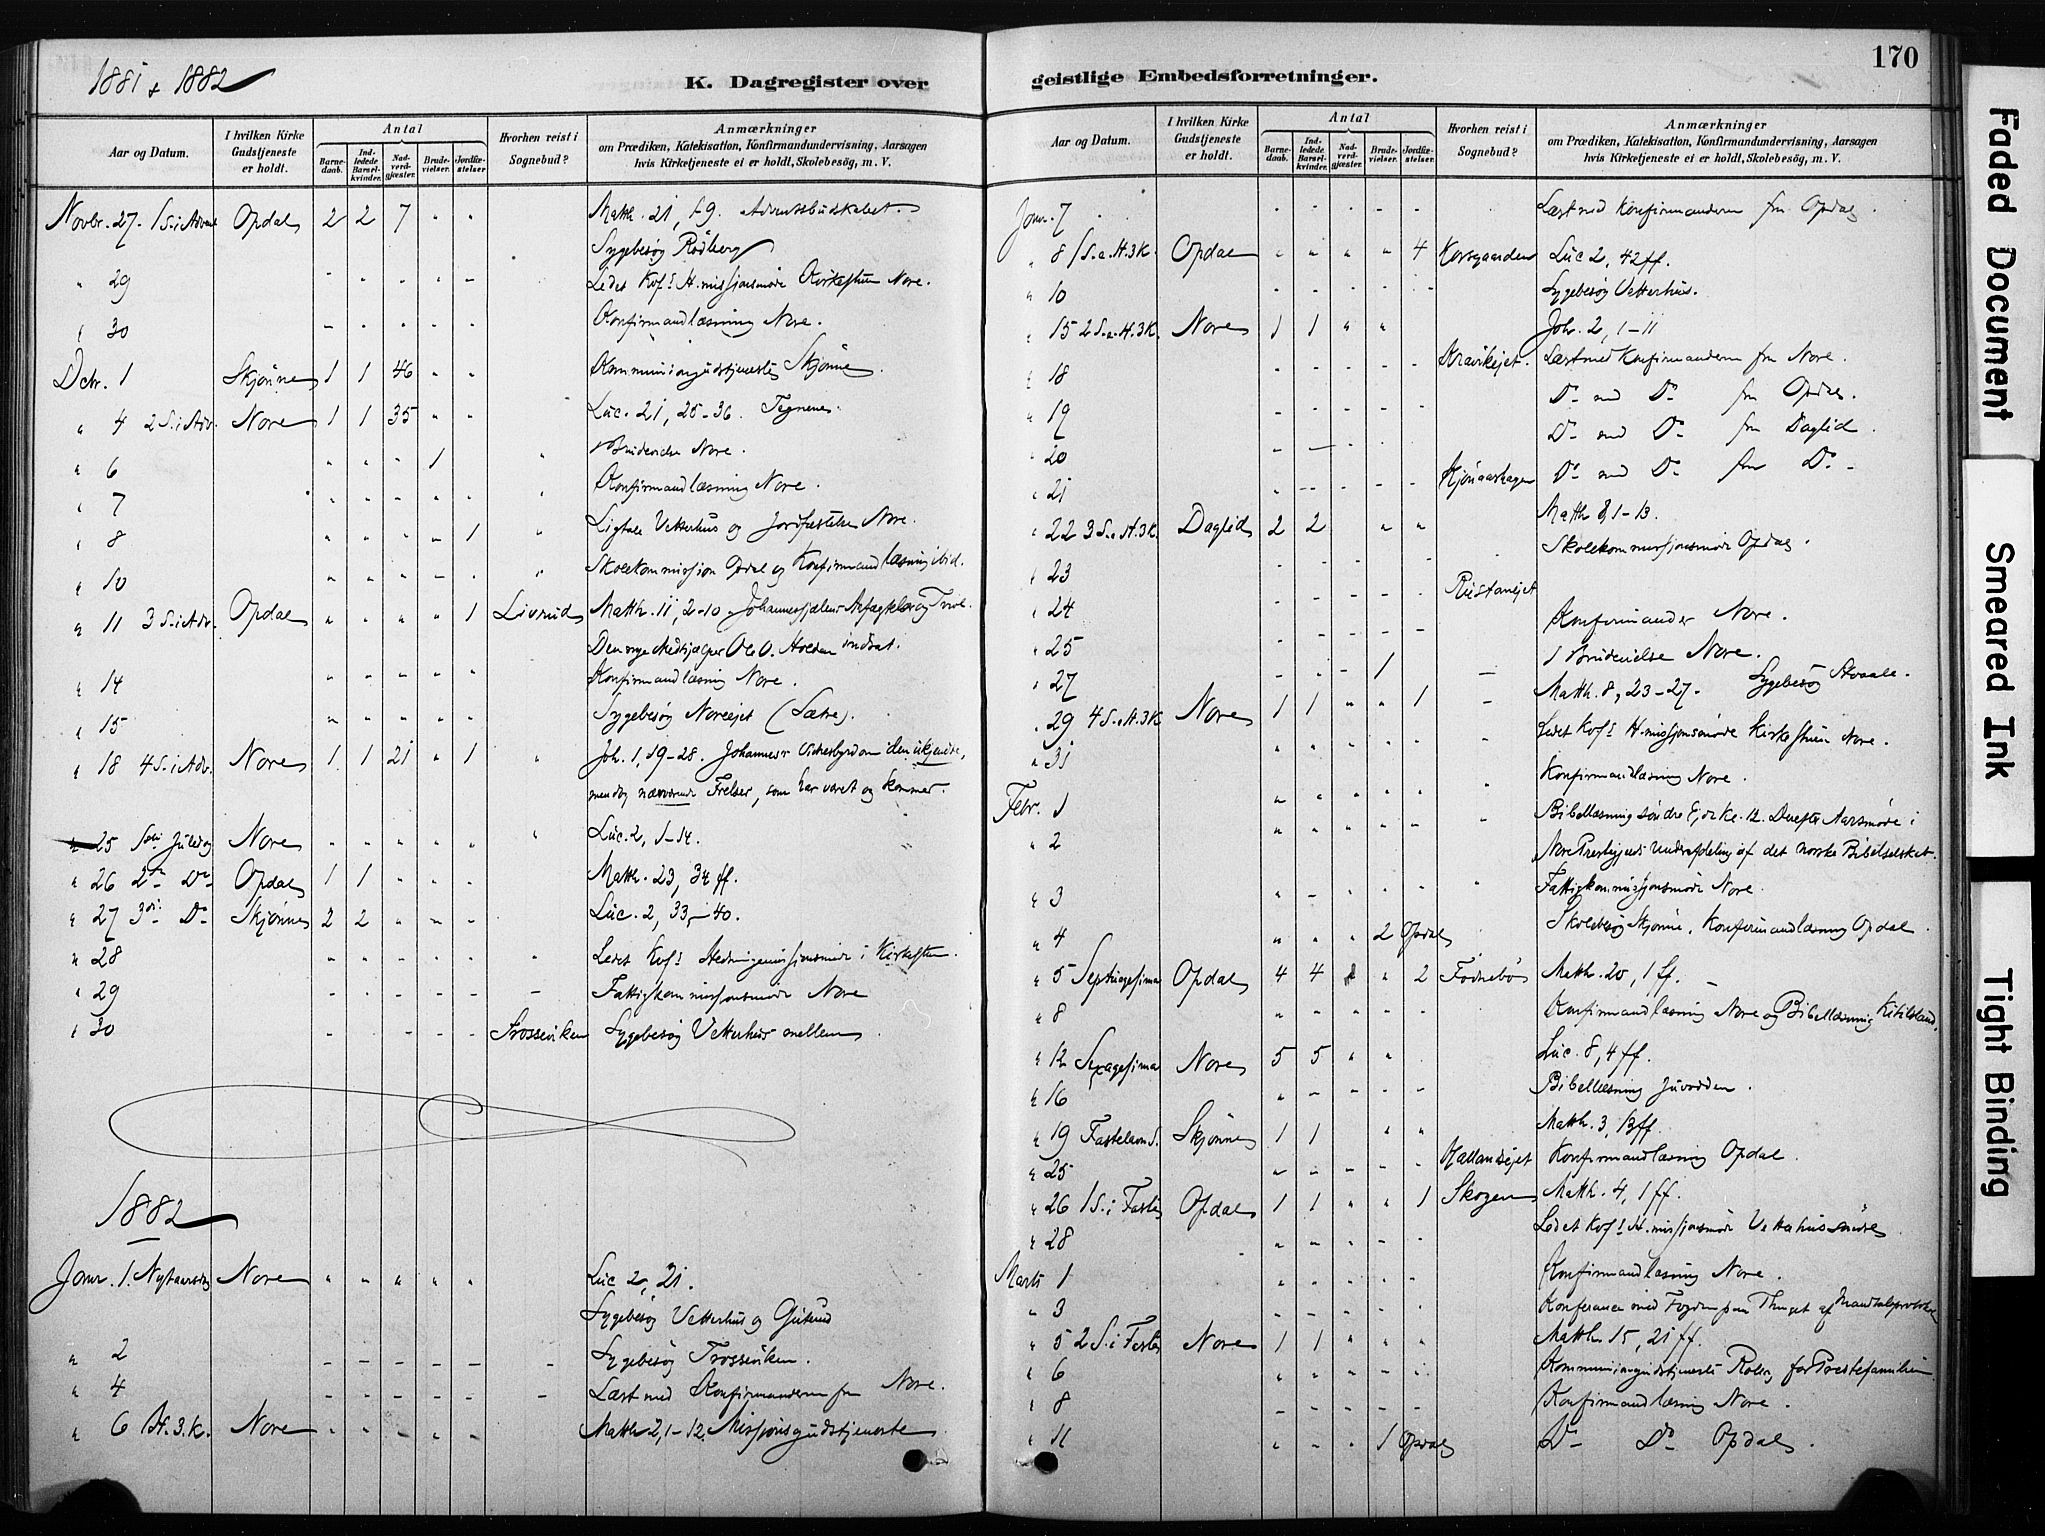 1881 & 1882
K. Dagregister over
Aar og Datum. I hvilken Kirke Gudstjeneste er holdt. Antal Barnedaab. Indledede Barselkvinder. Nadverdgjæster. Brudevielser. Jordfæstelser. Hvorhen reist i Sognebud? Anmærkninger om Prædiken, Katekisation, Konfirmandundervisning, Aarsagen hvis Kirketjeneste ei er holdt, Skolebesög, m. V.
Novbr. 27. 1 S. i Advent Opdal 2 2 7 " " Matth. 21, 1-9. Adventsbudskabet.
Sygebesøg Rødberg
" 29 - - - - - Ledet Kof: H. missionsmøde Kirkestuen Nore.
" 30 - - - - - Konfirmandlæsning Nore.
Dcbr. 1 Skjönne 1 1 46 " " Kommuniongudstjeneste Skjönne.
" 4 2 S. i Adv. Nore 1 1 35 " " Luc. 21, 25-36. Tegnene.
" 6 " " " 1 " Brudevielse Nore.
" 7 " " " " " " Konfirmandlæsning Nore.
" 8 " " " " 1 " Ligtale Vetterhus og Jordfæstelse Nore.
" 10 " " " - - " Skolekommission Opdal og Konfirmandlæsning ibid.
" 11 3 S. i Adv. Opdal " " " " 1 Livrud Matth. 11, 2-10. Johannes
Den nye Medhjælper Ole O. indsat.
" 14 " " " " " Konfirmandlæsning Nore.
" 15 " " " " " Sygebesøg Noreejet (Sætre).
" 18 4 S. i Adv. Nore 1 1 21 " 1 " Joh. 1, 19-28. Johannes's Vidnesbyrd om den ukjendte,
mendog nærværende Frelser, som har været og kommer.
" 25 1ste Juledag Nore " " " " " " Luc. 2, 1-14.
" 26 2den Do Opdal 1 1 " " " Matth. 23, 34 ff.
" 27 3die Do Skjönne 2 2 " - - Luc. 2, 33-40.
" 28 " " " " " " Ledet Kof: Hedningemissionsmøde i Kirkestuen.
" 29 - - - - - - Fattigkommissionsmøde Nore
" 30 - - - - - Trosseviken Sygebesøg Vetterhus mellem
1882
Janr. 1. Nytaarsdag Nore " " " " " Luc 2, 21.
Sygebesøg Vetterhus og
" 2 - - - - - - Sygebesøg Trosseviken.
" 4 - - - - - - Læst med Konfirmanderne fra Nore.
" 6 H. 3. K. Nore " " " " " Matth 2, 1-12. Missionsgudstjeneste
170
geistlige Embedsforretninger.
Aar og Datum. I hvilken Kirke Gudstjeneste er holdt. Antal Barnedaab. Indledede Barselkvinder. Nadverdgjæster. Brudevielser. Jordfæstelser. Hvorhen reist i Sognebud? Anmærkninger om Prædiken, Katekisation, Konfirmandundervisning, Aarsagen hvis Kirketjeneste ei er holdt, Skolebesög, m. V.
Janr. 7 - - - - - Læst med Konfirmanderne fra Opdal.
" 8 1 S. e. H. 3 K. Opdal " " " " 4 Korsgaarden Luc 2, 42 ff.
" 10 - - - - - Sygebesøg Vetterhus.
" 15 2 S. e. H. 3 K. Nore 1 1 " " Joh. 2, 1-11
" 18 - - - - - Kravikejet. Læst med Konfirmanderne fra Nore.
" 19 - - - - - Do med Do fra Opdal.
" 20 - - - - - Do med Do fra Daglid.
" 21 - - - - - Do med Do fra Do -
" 22 3 S. e. H. 3 K. Daglid 2 2 " " Matth 8, 1-13.
" 23 - - - - - Skolekommissionsmøde Opdal.
" 24 - - - - -
" 25 - - - - - Konfirmander Nore.
" 27 - - - 1 - 1 Brudevielse Nore.
" 29 4 S. e. H. 3 K Nore 1 1 " " 1 - Matth. 8, 23-27. Sygebesøg
" 31 " " " " " Ledet Kof: H. missionsmøde Kirkestuen Nore.
Febr. 1 " " " " " " Konfirmandlæsning Nore.
" 2 " " " " - " Bibellæsning søndre kl. 12. Derefter Aarsmøde i
Nore Prestegjelds Underafdeling af det norske Bibelselskab.
" 3 " - " " " " Fattigkommissionsmøde Nore
" 4 " " " 2 Opdal Skolebesøg Skjönne, Konfirmandlæsning Opdal
" 5 Septuagesima Opdal 4 4 " 2 Fodnebø Matth. 20, 1 ff.
" 8 " " " " - Konfirmandlæsning Nore og Bibellæsning
" 12 Sexagesima Nore 5 5 " " Luc. 8, 4 ff.
" 16 " - - - - Bibellæsning Juvodden.
" 19 Fastelavns S. Skjönne 1 1 " " Matth. 3, 13 ff.
" 25 " - - - - Hallandsejet Konfirmandlæsning Opdal.
" 26 1 S. i Faste Opdal 1 1 " " 1 Skogen Matth. 4, 1 ff.
" 28 " " " - - Ledet Kof: H. missionsmøde Vetterhus
Marts 1 " " " " - Konfirmandlæsning Nore.
" 3 - - - - - Konferance med Fogden paa Thinget af Mandtalsprotokol
" 5 2 S. i Faste Nore 1 1 " " " Matth. 15, 21 ff.
" 6 " " " " " Kommuniongudstjeneste Rolvg for Prestefamilien
" 8 - - - - - Konfirmandlæsning Nore.
" 11 " " " 1 Opdal Do Do Opdal.
Faded Document
Smeared Ink
Tight Binding